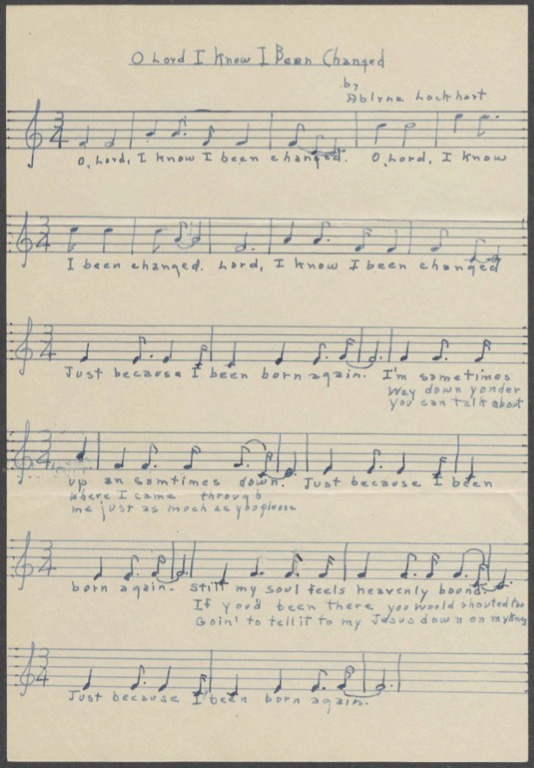 O Lord I Know I Been Changed
by
Ablyne Lockhart
O, Lord, I know I been changed. O, Lord, I know
I been changed. Lord, I know I been changed
Just because I been born again. I'm sometimes
Way down yonder
You can talk about
up an somtimes down. Just because I been
where I came through
me just as much as
born again. Still my soul feels heavenly bound.
If you'd been there you would shouted too
Goin' to tell it to my Jesus down on my
Just because I been born again.